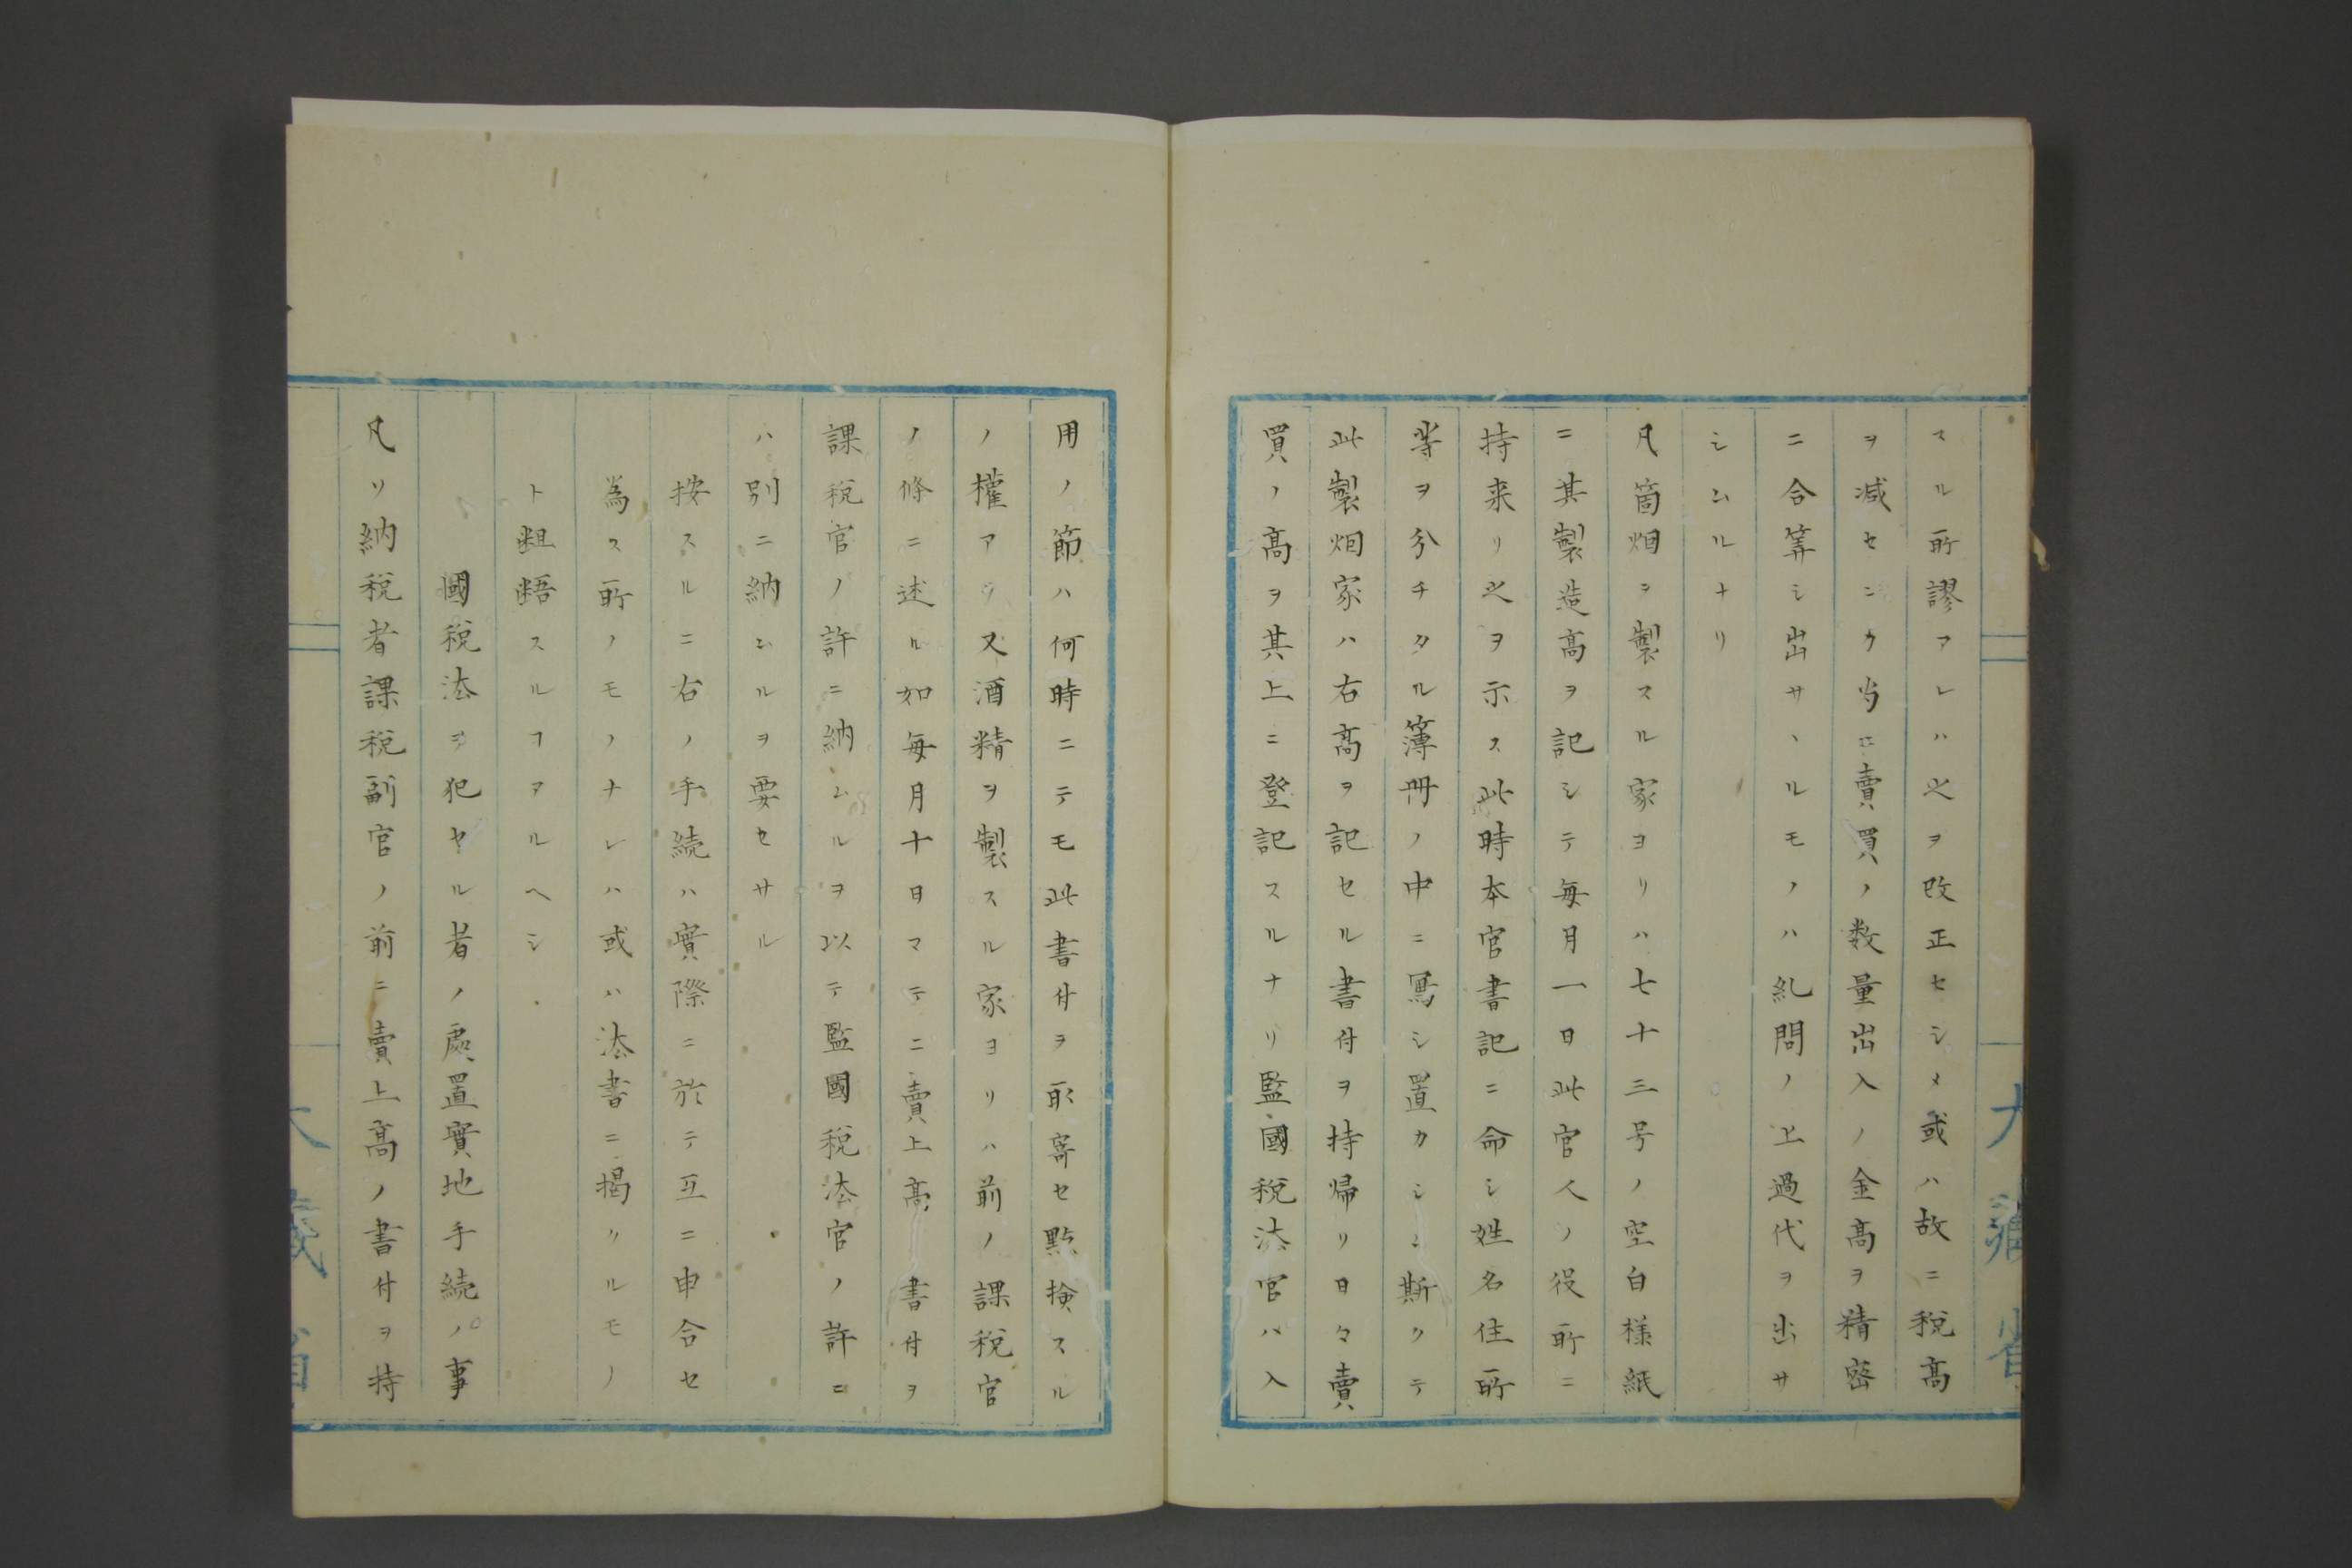 スル所謬アレハ之ヲ改正セシメ或ハ故ニ税高
ヲ減セニク当ニ賣買ノ数量出入ノ金高ヲ精密
ニ合筭シ出サヽルモノハ糺問ノ上過代ヲ出サ
シムルナリ
凡箇烟ヲ製スル家ヨリハ七十三号ノ空白様紙
ニ其製造高ヲ記シテ毎月一日此官人ノ役所ニ
持来リ之ヲ示ス此時本官書記ニ命シ姓名住所
等ヲ分チタル簿冊ノ中ニ寫シ置カシム斯クテ
此製烟家ハ右高ヲ記セル書付ヲ持帰リ日々賣
買ノ高ヲ其上ニ登記スルナリ監國税法官ハ入
用ノ節ハ何時ニテモ此書付ヲ取寄セ點検スル
ノ權アリ又酒精ヲ製スル家ヨリハ前ノ課税官
ノ條ニ述ル如毎月十日マテニ賣上高書付ヲ
課税官ノ許ニ納ムルヲ以テ監國税法官ノ許ニ
ハ別ニ納ムルヲ要セサル
按スルニ右ノ手続ハ實際ニ於テ互ニ申合セ
為ス所ノモノナレハ或ハ法書ニ掲クルモノ
ト齟齬スルヿアルヘシ
國税法ヲ犯セル者ノ處置實地手続ノ事
凡ソ納税者課税副官ノ前ニ賣上高ノ書付ヲ持
大藏省